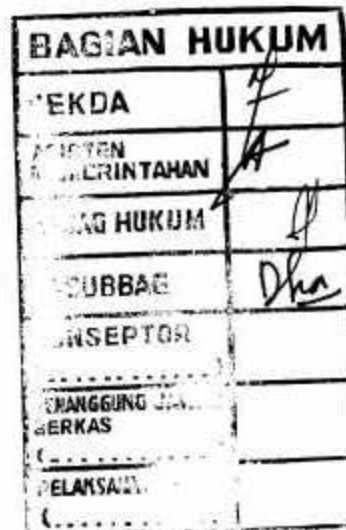 BAGIAN HUKUM
SEKDA
ASISTEN
PEMERINTAHAN
KABAG HUKUM
KASUBBAG
KONSEPTOR
(............)
PENANGGUNG JAWAB
BERKAS
(............)
PELAKSANA
(............)